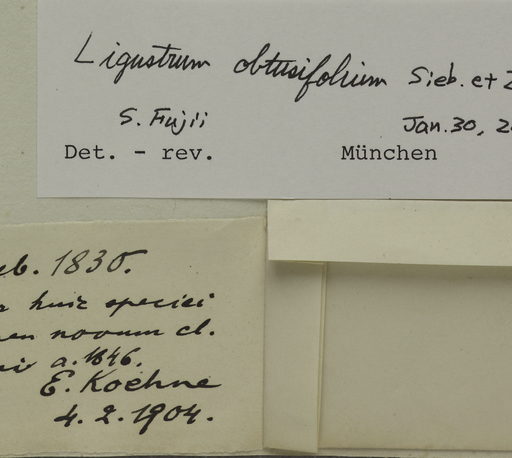 Ligustrum obtusifolium Sieb. et Z
S. Fujii Jan. 30, 2
Det. - rev. München
eb. 1830.
huic speciei
novum cl.
a. 1846.
E. Koehne
4. 2. 1904.